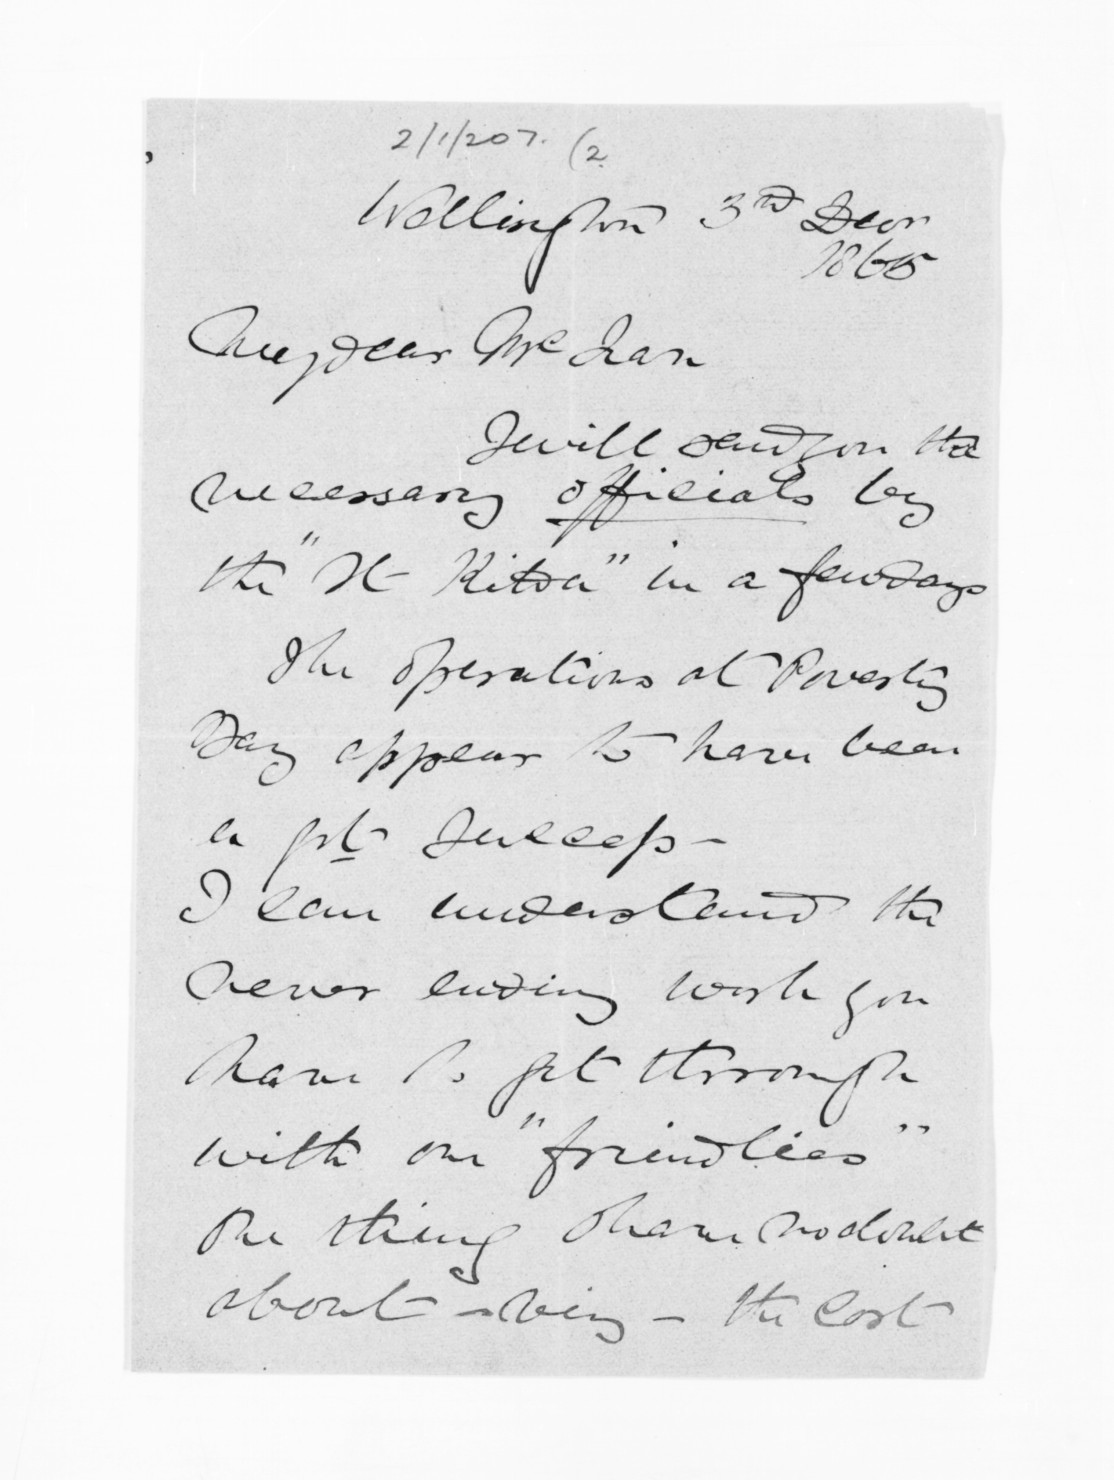 2/1/207. (2.
Wellington 3rd Decr
1865
My dear McLean
I will send you the
necessary officials by
the "St Kilda" in a few days
The operations at Poverty
Bay appear to have been
a grt success –
I can understand the
never ending work you
have to get through
with our "friendlies"
One thing I have no doubt
about – being – the cost